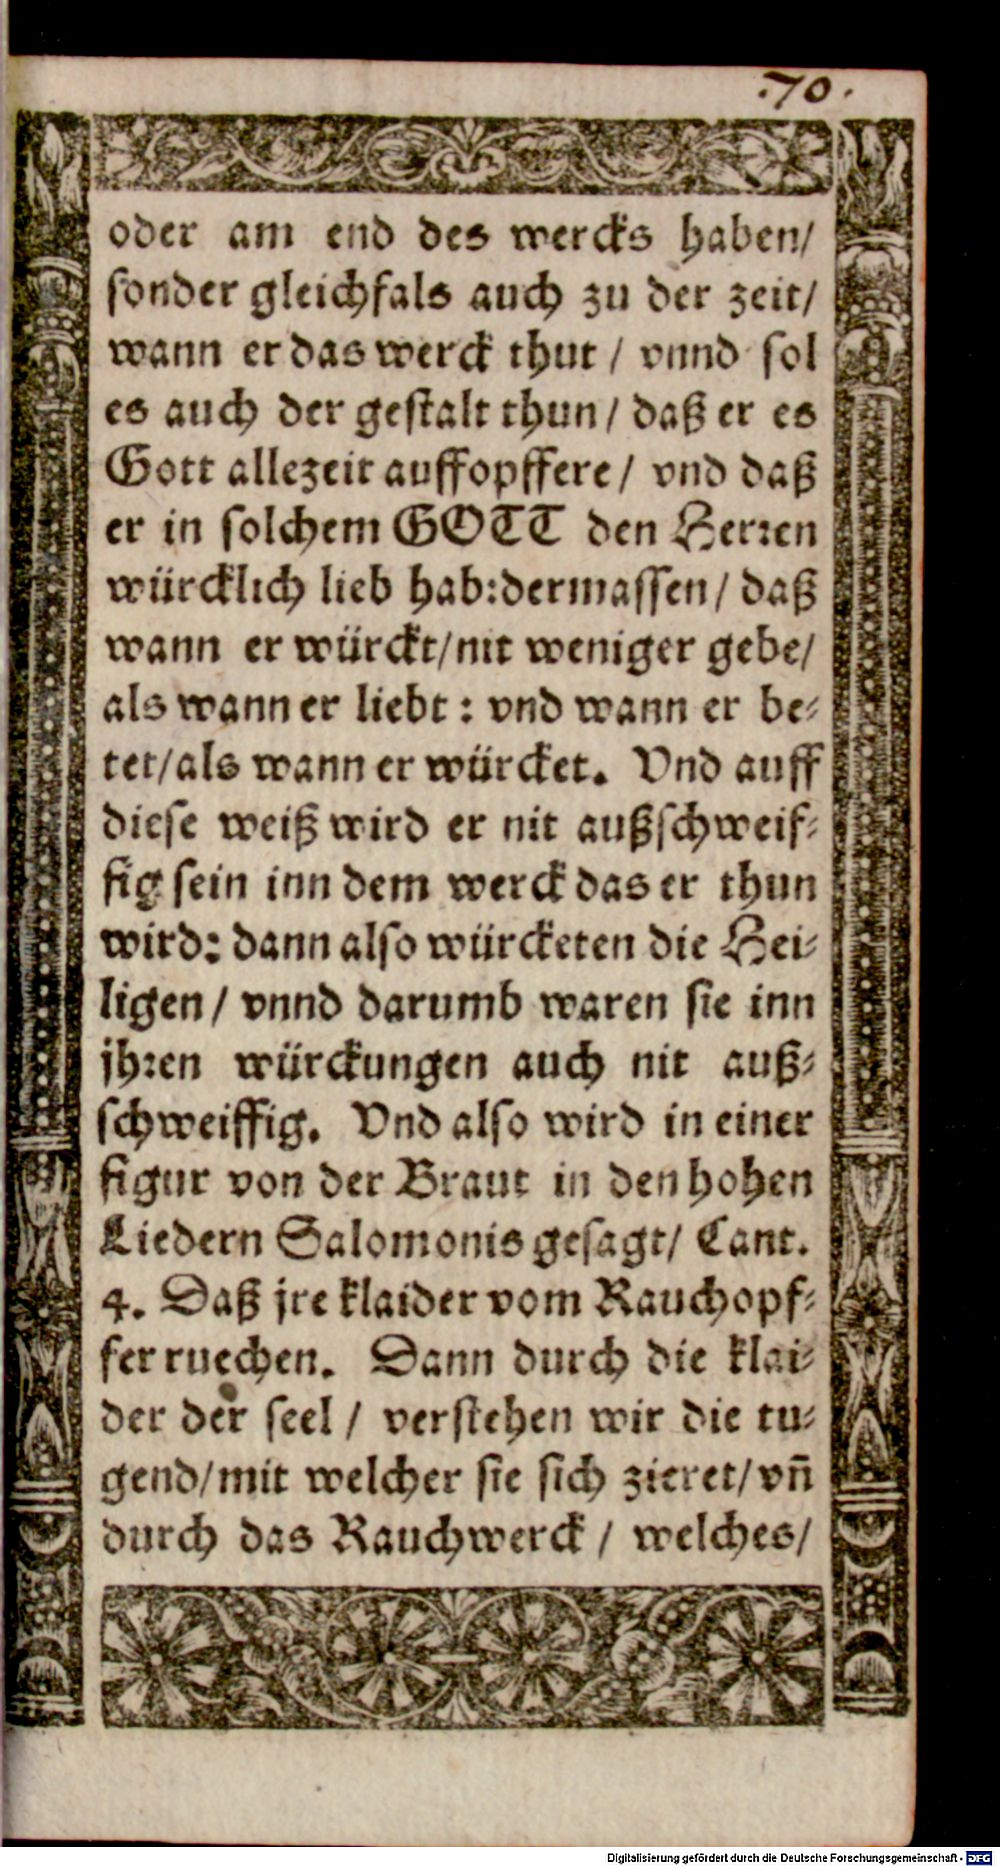 .70.
oder am end des wercks haben/
sonder gleichfals auch zu der zeit/
wann er das werck thut / vnnd sol
es auch der gestalt thun / daß er es
Gott allezeit auffopffere / vnd daß
er in solchem GOTT den Herren
würcklich lieb hab: dermassen / daß
wann er würckt/nit weniger gebe/
als wann er liebt : vnd wann er be-
tet/als wann er würcket. Vnd auff
diese weiß wird er nit außschweif-
fig sein inn dem werck das er thun
wird: dann also würcketen die Hei-
ligen / vnnd darumb waren sie inn
jhren würckungen auch nit auß-
schweiffig. Vnd also wird in einer
figur von der Braut in den hohen
Liedern Salomonis gesagt/ Cant.
4. Daß jre klaider vom Rauchopf-
fer ruechen. Dann durch die klai-
der der seel / verstehen wir die tu-
gend/mit welcher sie sich zieret/vñ
durch das Rauchwerck / welches/
Digitalisierung gefördert durch die Deutsche Forschungsgemeinschaft - DFG